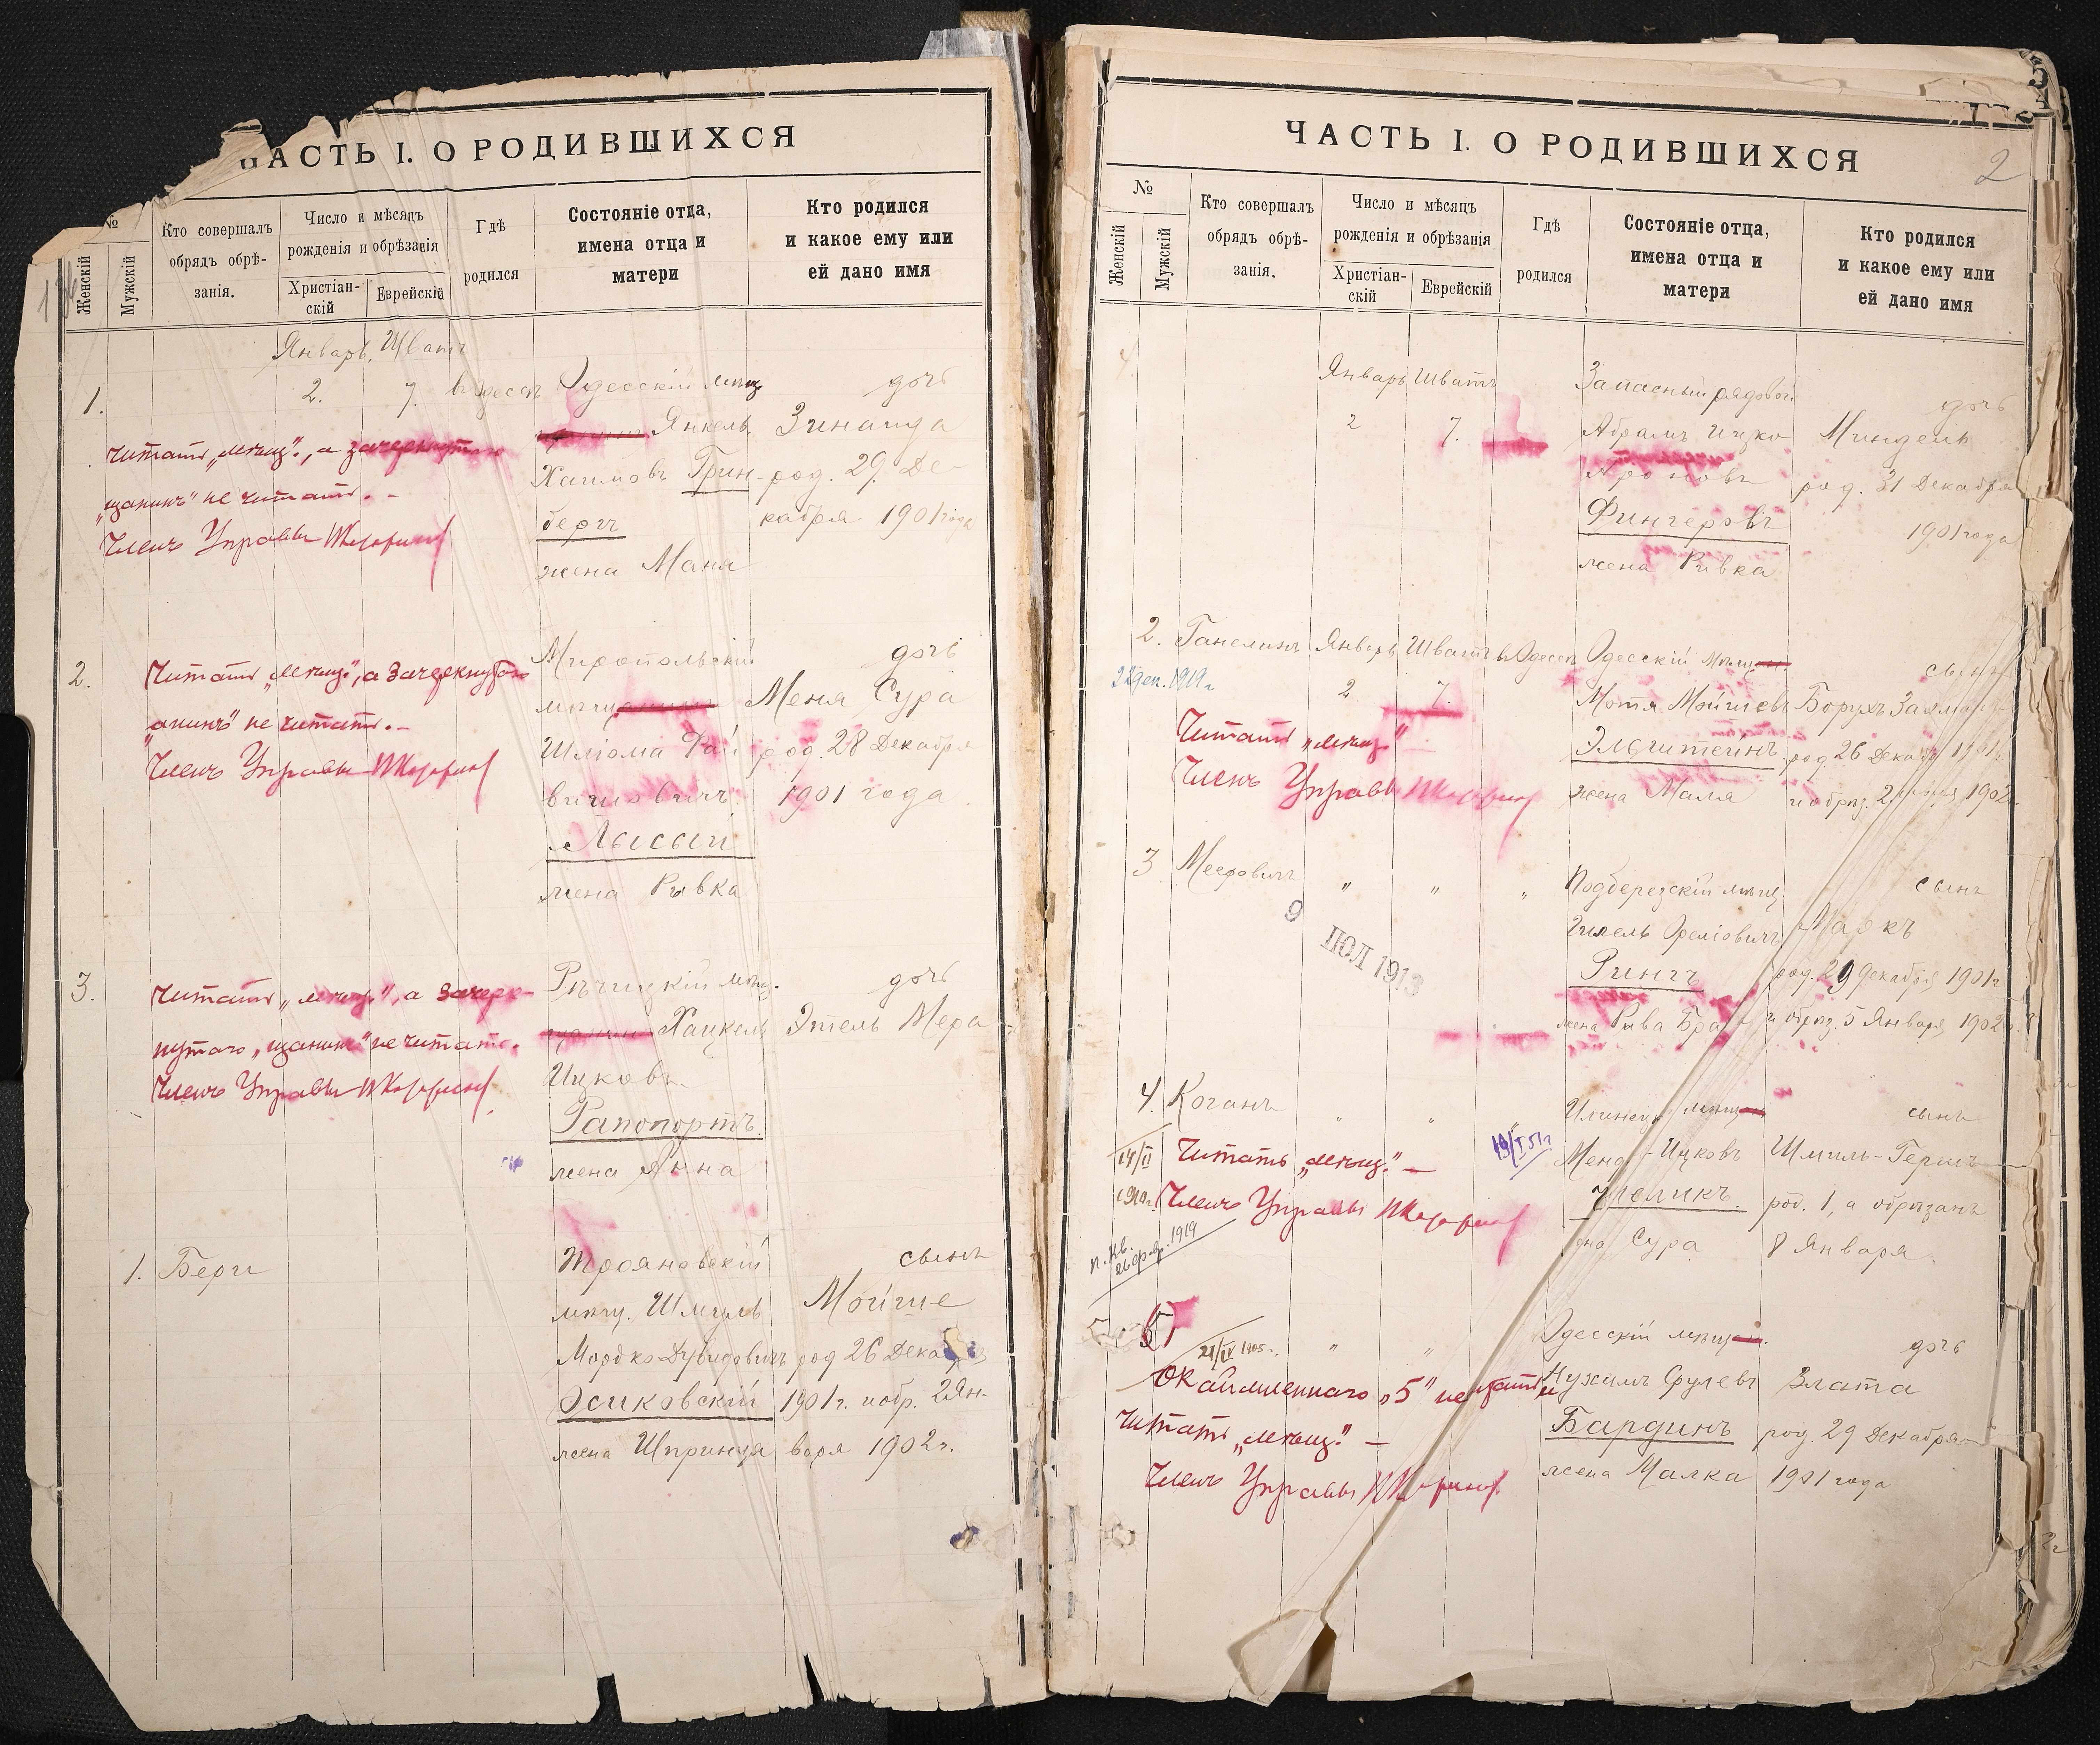 ЧАСТЬ I. О РОДИВШИХСЯ
№
Женскій
Мужскій
Кто совершалъ
обрядъ обрѣ-
занія.
Число и мѣсяцъ
рожденія и обрѣзанія
Христіан-
скій
Еврейскій
Гдѣ
родился
Состояніе отца,
имена отца и
матери
Кто родился
и какое ему или
ей дано имя
Январь. Шватъ
1.
2.
7.
в Одессѣ
Одесскій мѣщ
дочь
Янкель
Зинаида
Хаимовъ Грин-
род. 29. Де-
бергъ
кабря 1901 года
жена Маня
Читать „мѣщ.", а зачеркнутаго
„щанинъ" не читать. -
Членъ Управы
2.
Миропольскій
дочь
мѣщ
Меня Сура
Шлiома
род. 28 Декабря
1901 года.
Лысый
жена Рывка
Читать „мѣщ.", а зачеркнутаго
„анинъ" не читать. -
Членъ Управы
3.
Рѣчицкій мѣщ.
дочь
Хацкель
Этель Мера
Ицковъ
Рапопортъ.
жена Анна
Читать „мѣщ.", а зачерк-
нутаго „щанинъ" не читать.
Членъ Управы
1.
Берг
Трояновскій
сынъ
мѣщ. Шмуль
Мойше
Мордко Дувидовичъ
род 26 Декабря
Осиковскій
1901 г. и обр. 2 Ян-
жена Шпринца
варя 1902 г.
ЧАСТЬ I. О РОДИВШИХСЯ
2
№
Женскій
Мужскій
Кто совершалъ
обрядъ обрѣ-
занія.
Число и мѣсяцъ
рожденія и обрѣзанія
Христіан-
скій
Еврейскій
Гдѣ
родился
Состояніе отца,
имена отца и
матери
Кто родился
и какое ему или
ей дано имя
4
Январь Шватъ
2
7.
Запасный рядовой
дочь
Абрамъ Ицко
Миндель
Ароновъ
род. 31 Декабря
Фингеровъ
1901 года
жена Рывка
2.
Ганелинъ
Январь
Шватъ
в Одессѣ
Одесскій мѣщ
сынъ
2
7.
Мотя Мойшевъ
Борухъ Залманъ
Эльштейнъ.
род. 26 Декаб 1901 г.
жена Маля
и обрѣз. 2 1902 г.
22 дек. 1919 г
Читать „мѣщ."
Членъ Управы
3
Меерович
"
"
"
Подберезскій мѣщ.
сынъ
Маркъ
Рингъ
род. 29 декабря 1901 г
жена Рыва
и обрѣз. 5 Января 1902 г.
9 ІЮЛ 1913
4.
Коганъ
"
"
"
мѣщ
сынъ
Ицковъ
Шмиль-Герш
род. 1, а обрѣзанъ
Сура
8 Января.
14/II
1910 г.
19/I 51 г
Читать „мѣщ." —
Членъ Управы
1919
5
21/IV 1905 г.
"
"
Одесскій мѣщ
дочь
Нухимъ Срулевъ
Злата
Бардинъ
род. 29 Декабря
жена Малка
1901 года
Окаймленнаго „5" не читать, и
Читать „мѣщ." —
Членъ Управы